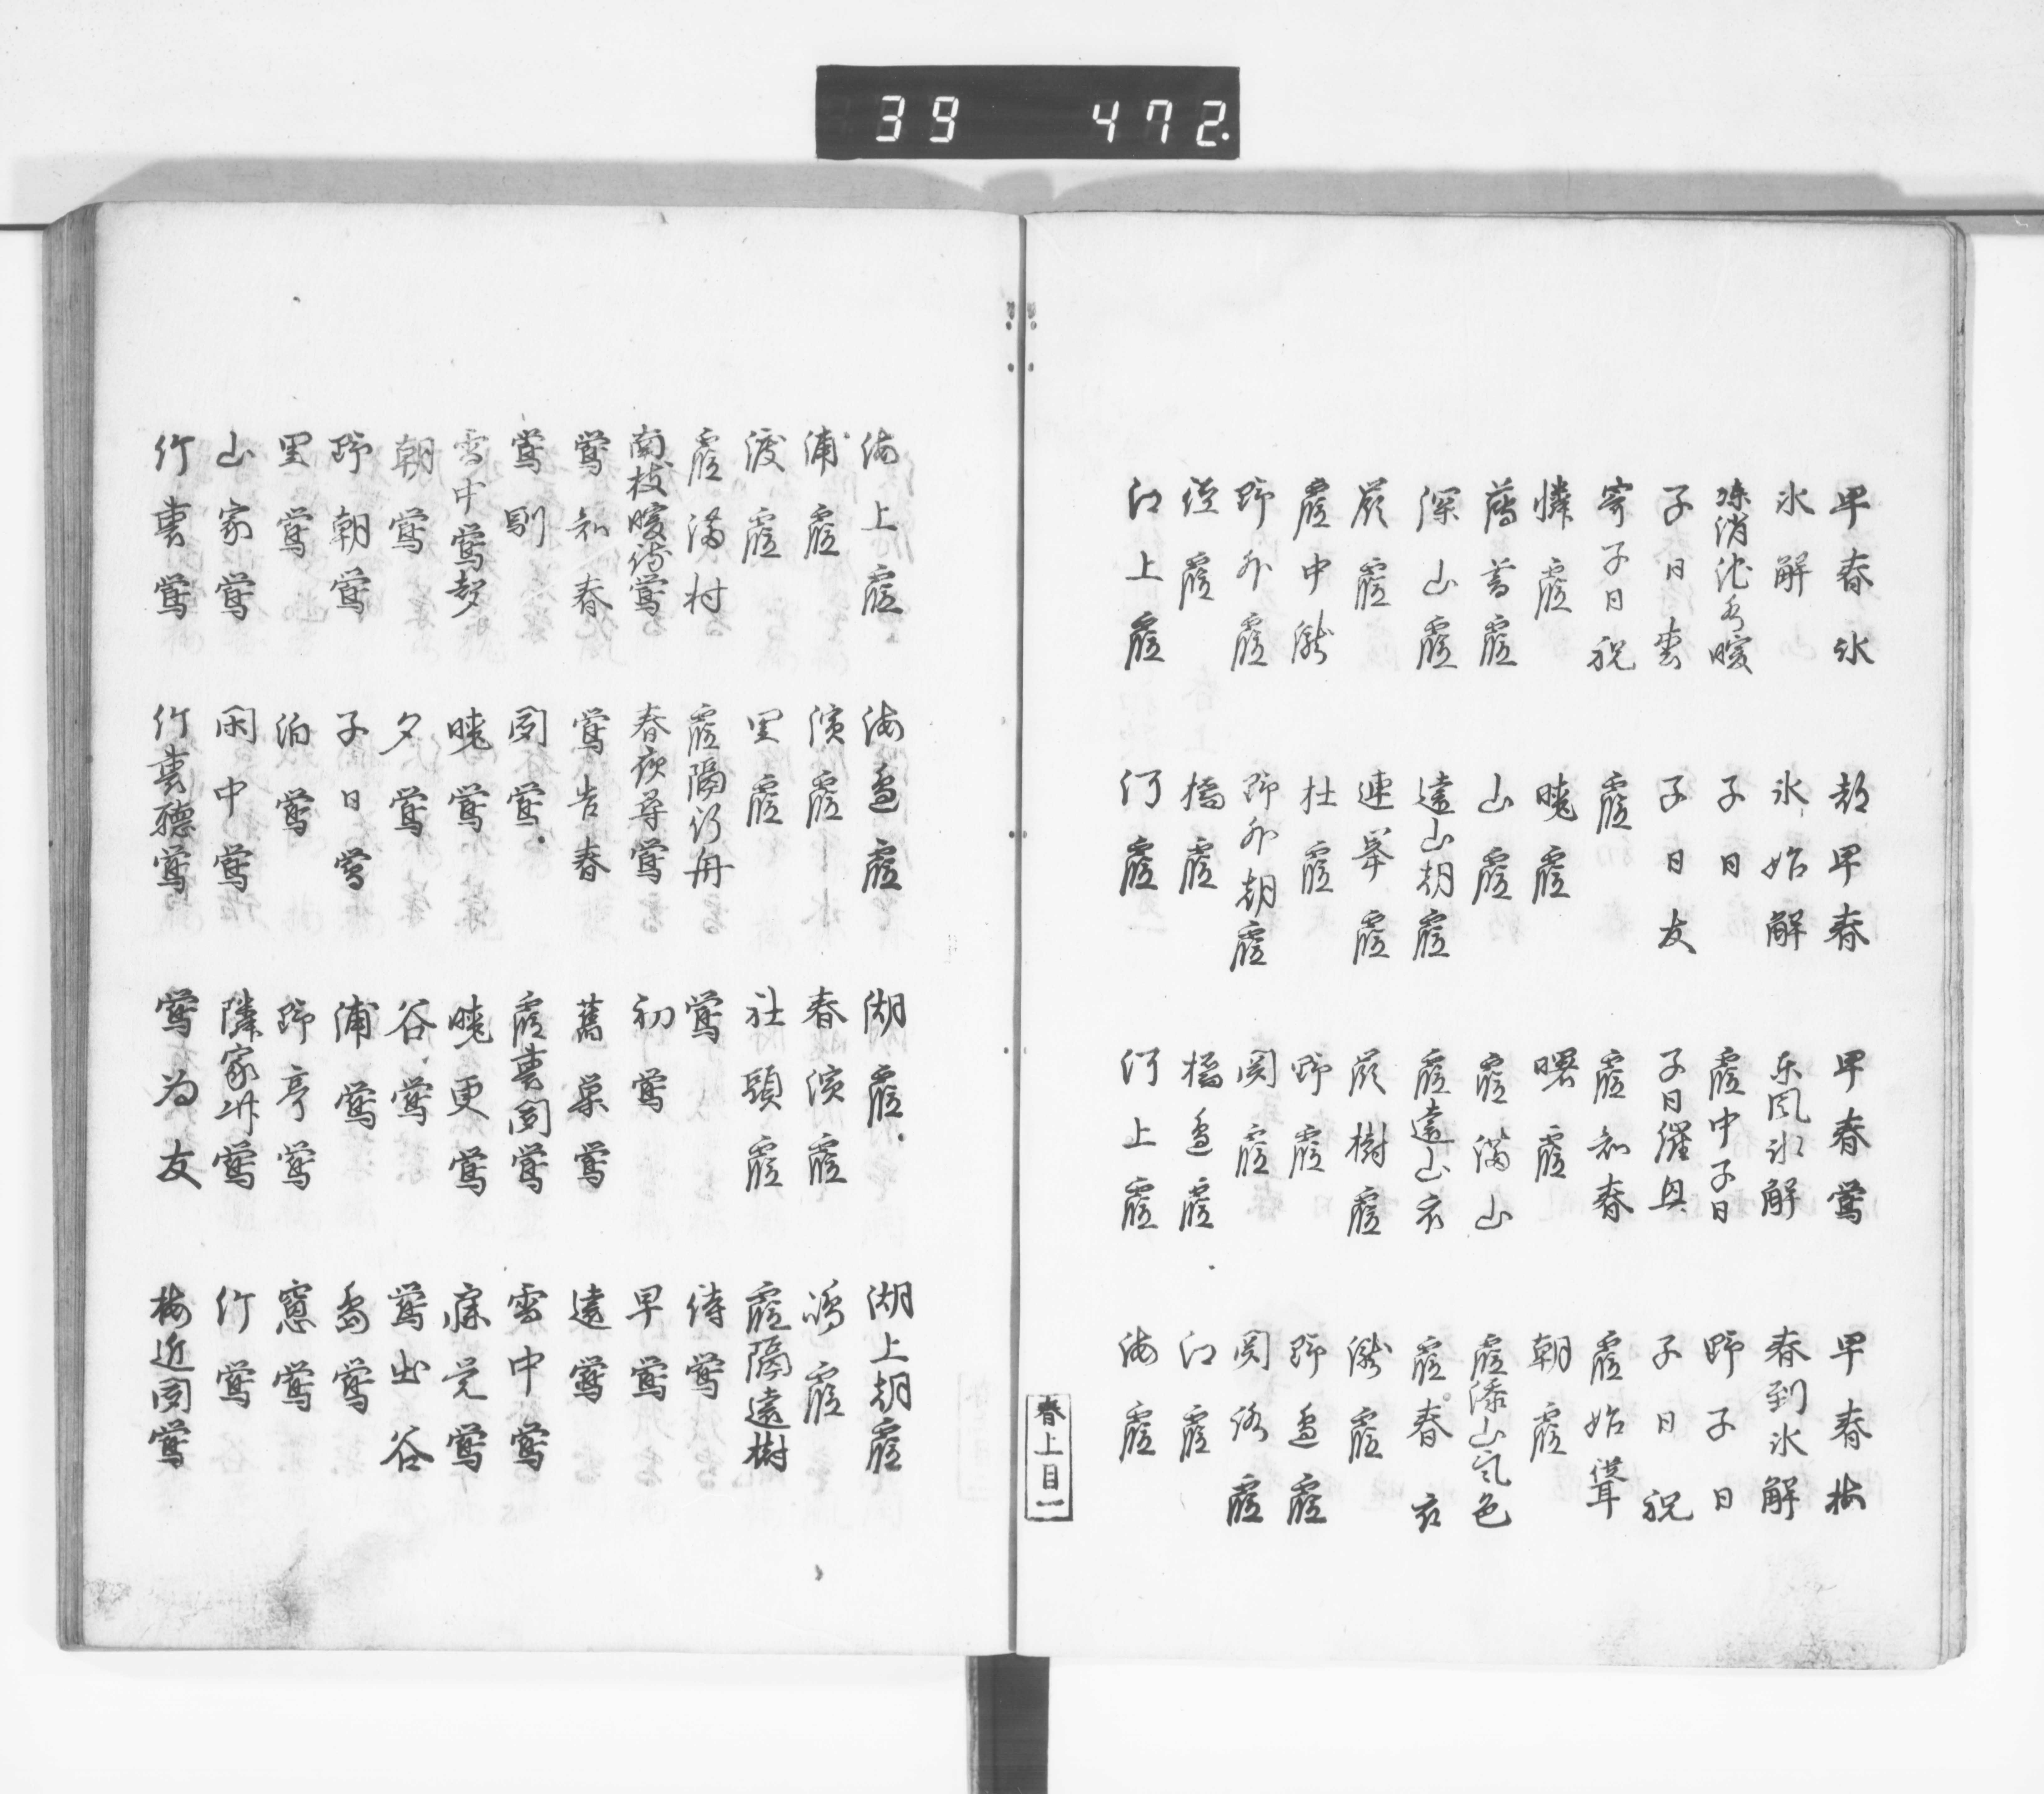 39 472.
早春氷 都早春 早春鶯 早春梅
氷解 氷始解 東風氷解 春到氷解
凍消池水暖 子日 霞中子日 野子日
子日裏 子日友 子日催興 子日祝
寄子日祝 霞 霞知春 霞始聳
憐霞 暁霞 曙霞 朝霞
薄暮霞 山霞 霞満山 霞添山気色
深山霞 遠山朝霞 霞遠山衣 霞春衣
嶺霞 連峯霞 嶺樹霞 瀧霞
霞中瀧 杜霞 野霞 野邊霞
野外霞 野外朝霞 関霞 関路霞
径霞 橋霞 橋邊霞 江霞
江上霞 河霞 河上霞 海霞
春上目一
海上霞 海邊霞 湖霞 湖上朝霞
浦霞 濱霞 春濱霞 嶋霞
渡霞 里霞 社頭霞 霞隔遠樹
霞満村 霞隔行舟 鶯 待鶯
南枝暖待鶯 春夜尋鶯 初鶯 早鶯
鶯知春 鶯告春 舊巣鶯 遠鶯
鶯馴 聞鶯 霞裏聞鶯 雪中鶯
雪中鶯声 暁鶯 暁更鶯 寐覚鶯
朝鶯 夕鶯 谷鶯 鶯出谷
野朝鶯 子日鶯 浦鶯 嶋鶯
里鶯 泊鶯 野亭鶯 窓鶯
山家鶯 閑中鶯 隣家竹鶯 竹鶯
竹裏鶯 竹裏聴鶯 鶯為友 梅近聞鶯